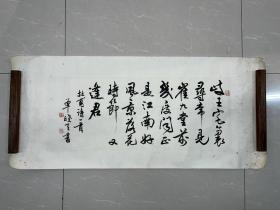 岐王宅裏
尋常見
崔九堂前
幾度聞正
是江南好
風景落花
時節又
逢君
杜甫詩一首
單曉天書